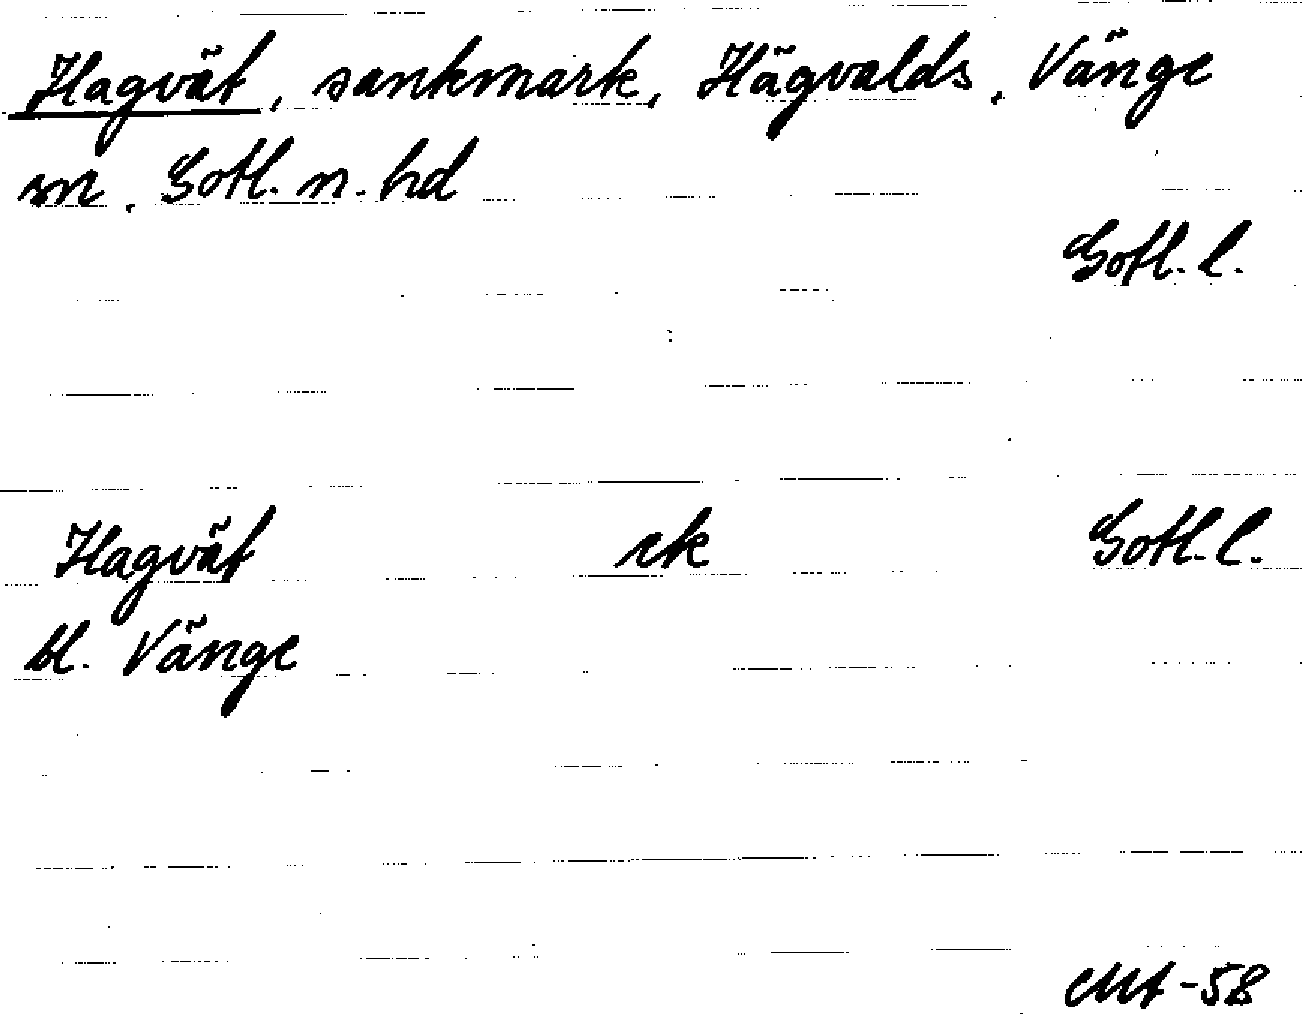 Hagvät, sankmark, Hägvalds, Vänge
sn. Gotl. n. hd
Gotl. l.
Hagvät ek Gotl. l.
bl. Vänge
-58